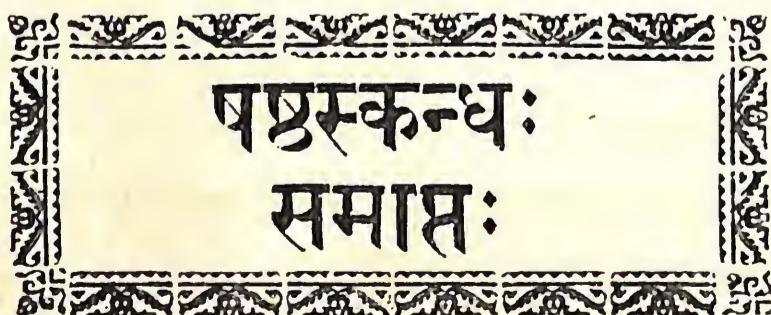 षष्ठस्कन्धः
समाप्तः